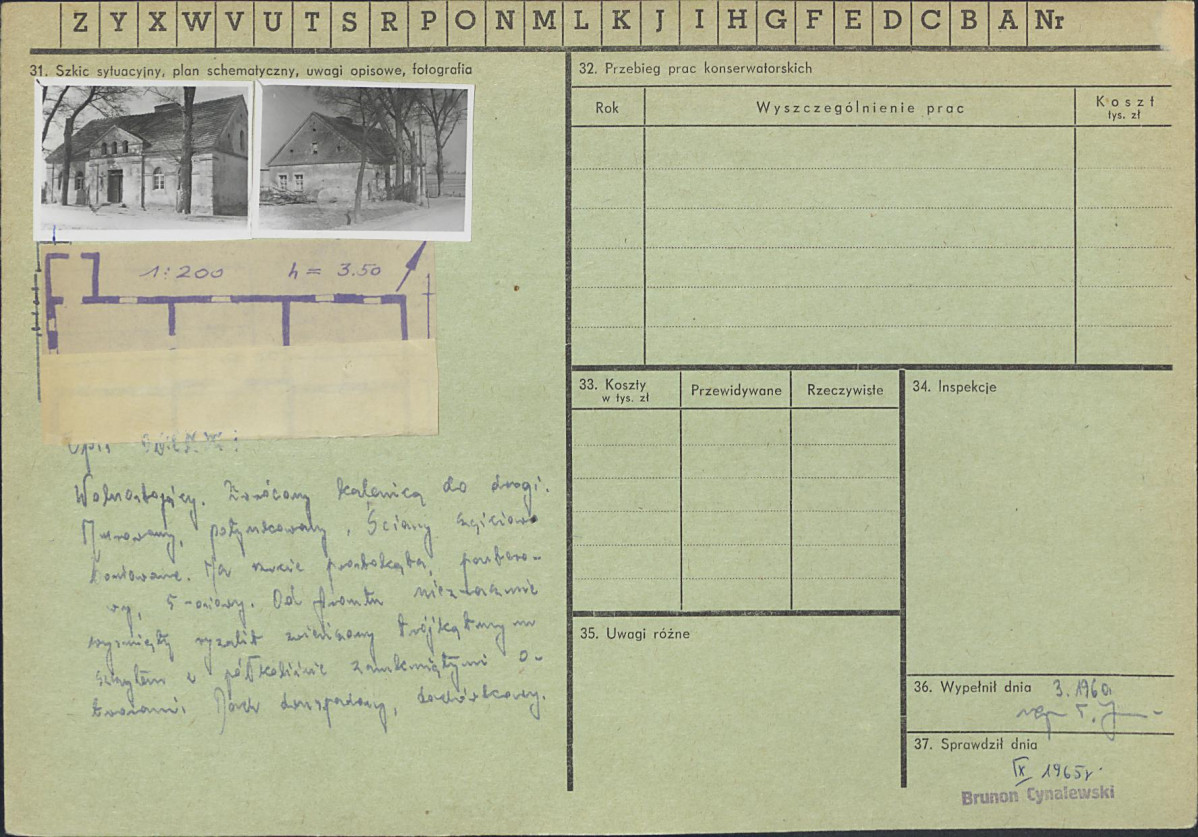 Z Y X W V U T S R P O N M L K J I H G F E D C B A Nr
31. Szkic sytuacyjny, plan schematyczny, uwagi opisowe, fotografia
1:200 h = 3.50
Opis
Wolnostojący. Zwrócony kalenicą do drogi.
Murowany, potynkowany, Ściany częściowo
boniowane. Na rzucie prostokąta, partero-
wy, 5-osiowy. Od frontu nieznacznie
wysunięty ryzalit zwieńczony trójkątnym
szczytem z półkoliście zamkniętymi o-
tworami. Dach dwuspadowy, dachówkowy.
32. Przebieg prac konserwatorskich
Rok
Wyszczególnienie prac
Koszt
tys. zł
33. Koszty
w tys. zł
Przewidywane
Rzeczywiste
34. Inspekcje
35. Uwagi różne
36. Wypełnił dnia 3.1960
37. Sprawdził dnia
IX 1965r.
Brunon Cynalewski